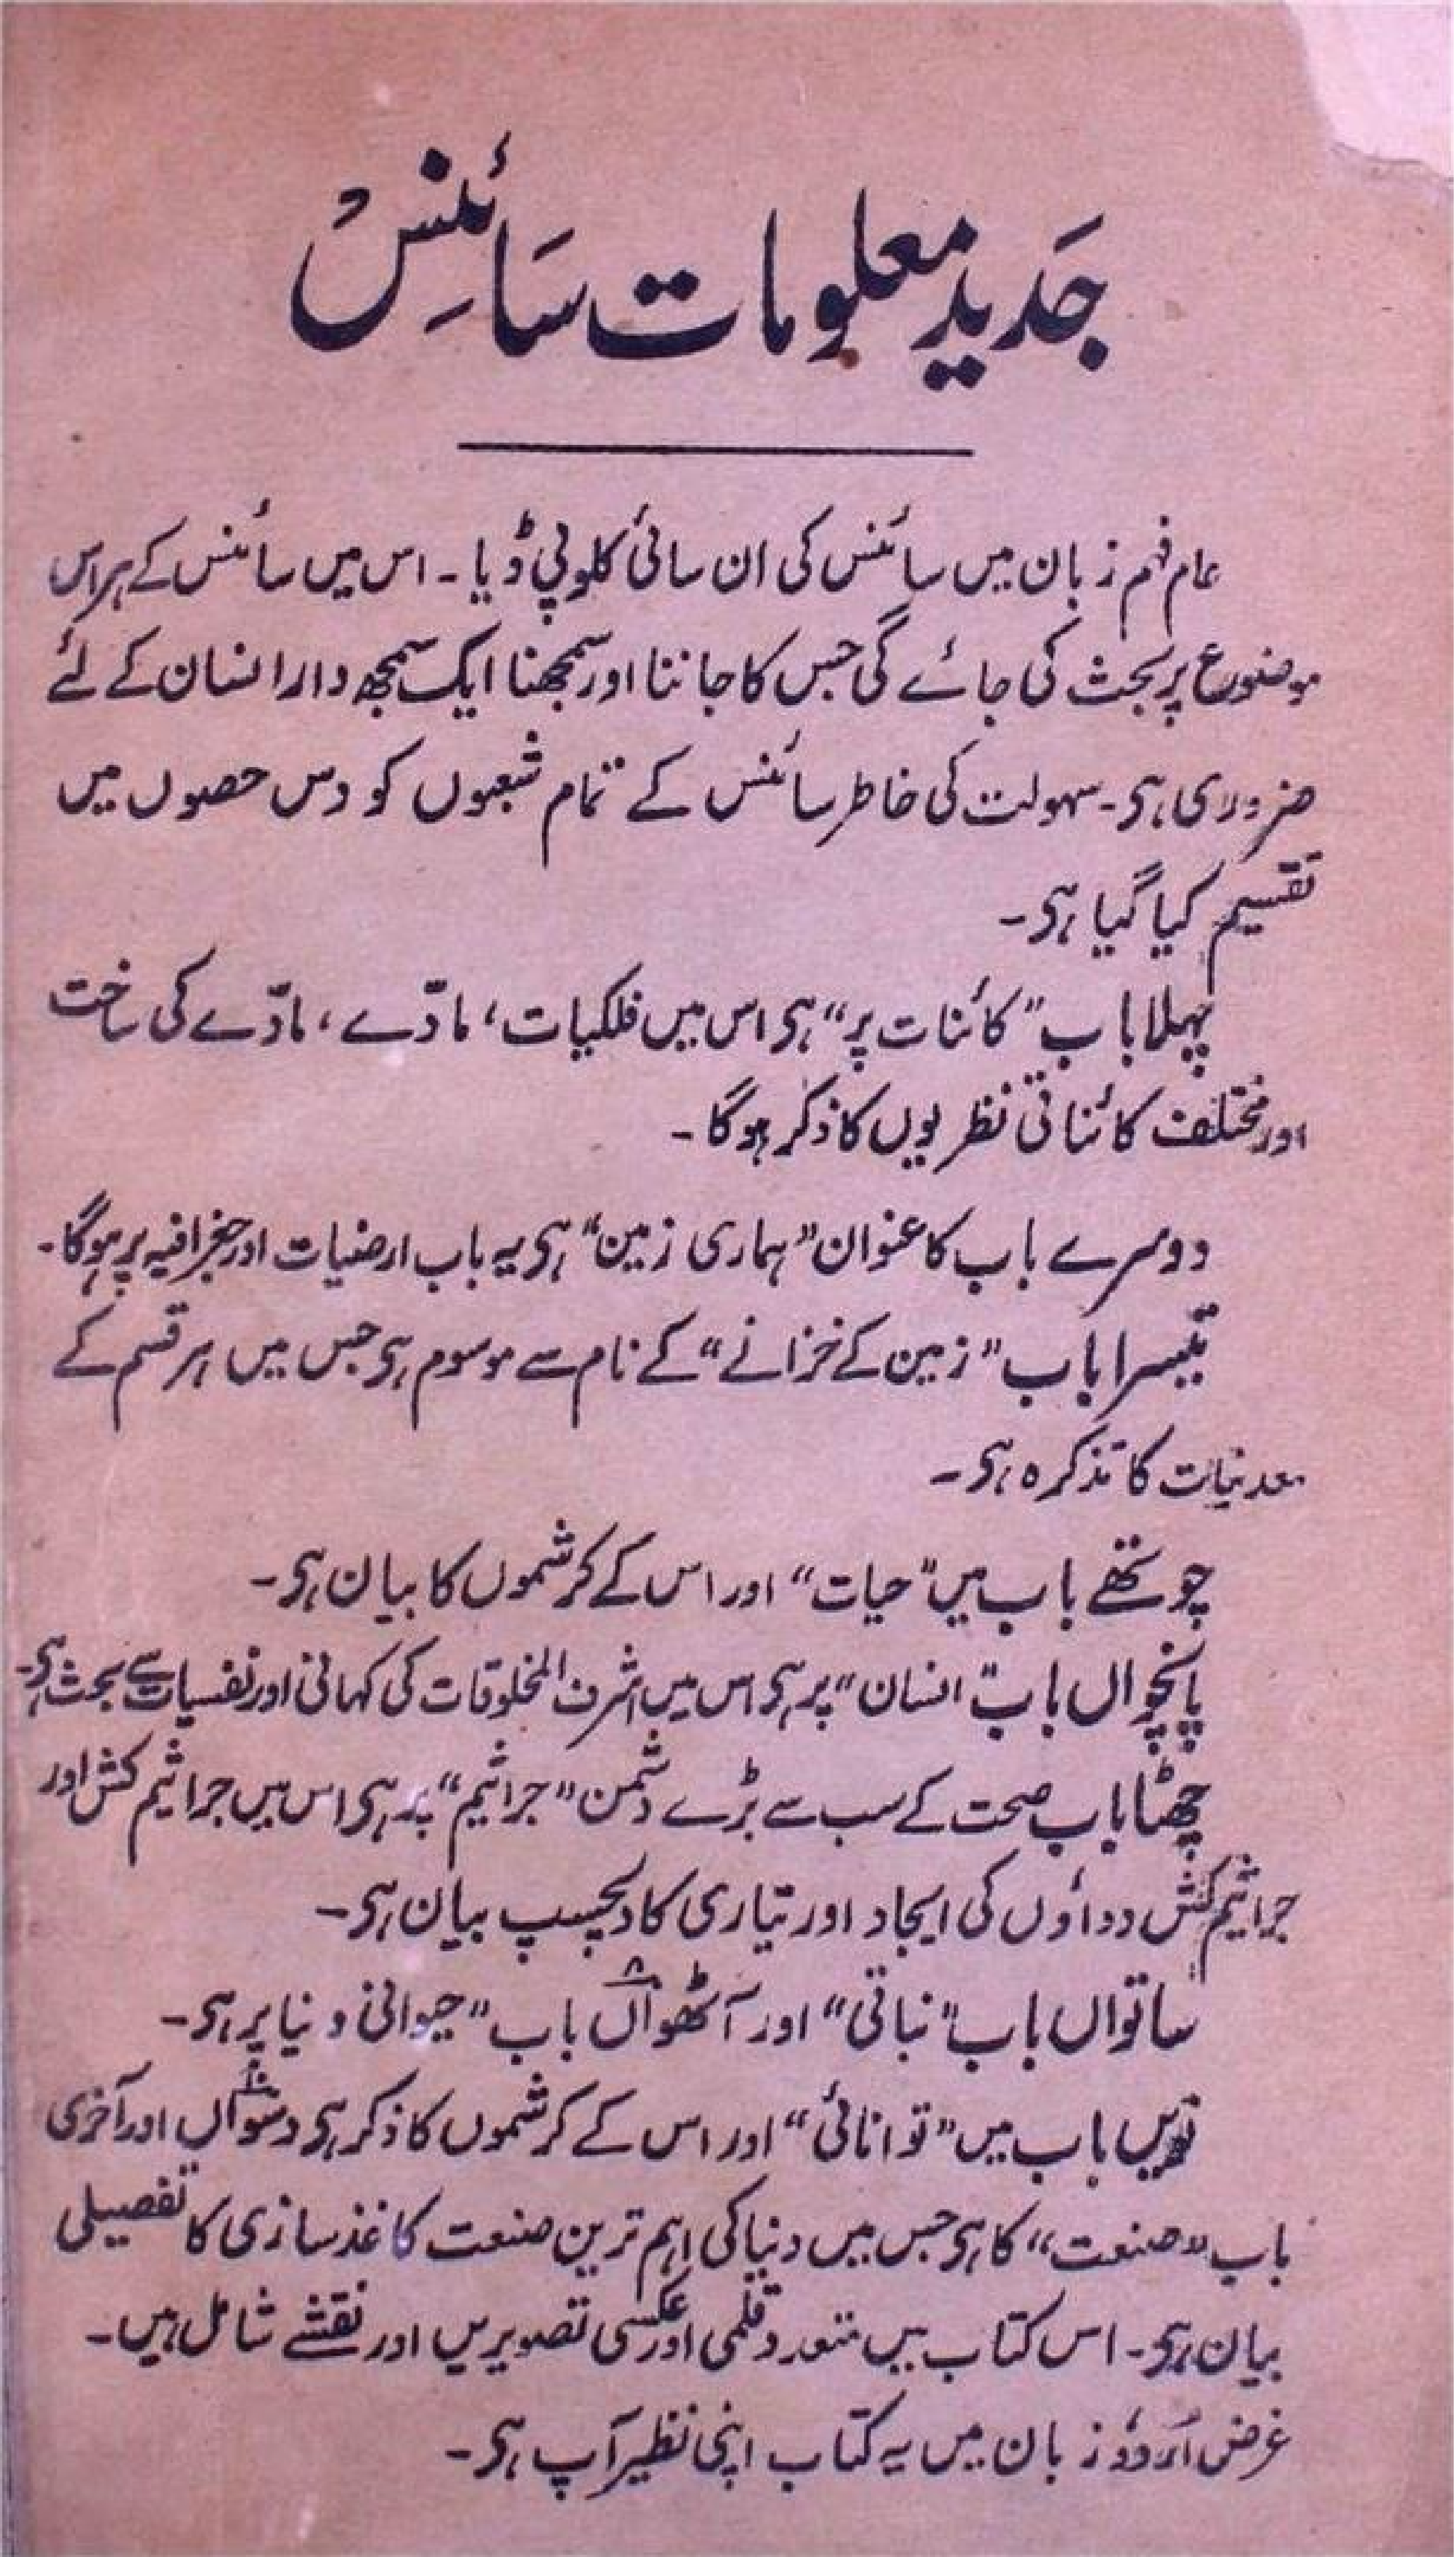 جَدید معلومات سَائِنسْ
عام فہم زبان میں سائنس کی ان سائی کلوپی ڈیا۔ اس میں سائنس کے ہر اس
موضوع پر بحث کی جائے گی جس کا جاننا اور سمجھنا ایک سمجھ دار انسان کے لئے
ضروری ہی۔ سہولت کی خاطر سائنس کے تمام شعبوں کو دس حصوں میں
تقسیم کیا گیا ہی۔
پہلا باب "کائنات پر" ہی اس میں فلکیات، مادّے، مادّے کی ساخت
اور مختلف کائناتی نظریوں کا ذکر ہوگا۔
دوسرے باب کا عنوان "ہماری زمین" ہی یہ باب ارضیات اور جغرافیہ پر ہوگا۔
تیسرا باب "زمین کے خزانے" کے نام سے موسوم ہی جس میں ہر قسم کے
معدنیات کا تذکرہ ہی۔
چوتھے باب میں "حیات" اور اس کے کرشموں کا بیان ہی۔
پانچواں باب "انسان" پر ہی اس میں اشرف المخلوقات کی کہانی اور نفسیات سے بحث ہی۔
چھٹا باب صحت کے سب سے بڑے دشمن "جراثیم" پر ہی اس میں جراثیم کش اور
جراثیم کش دواؤں کی ایجاد اور تیاری کا دلچسپ بیان ہی۔
ساتواں باب "نباتی" اور آٹھواں باب "حیوانی دنیا پر ہی۔
نویں باب میں "توانائی" اور اس کے کرشموں کا ذکر ہی دسواں اور آخری
باب "صنعت" کا ہی جس میں دنیا کی اہم ترین صنعت کاغذ سازی کا تفصیلی
بیان ہی۔ اس کتاب میں متعدد قلمی اور عکسی تصویریں اور نقشے شامل ہیں۔
غرض اُردوٗ زبان میں یہ کتاب اپنی نظیر آپ ہی۔